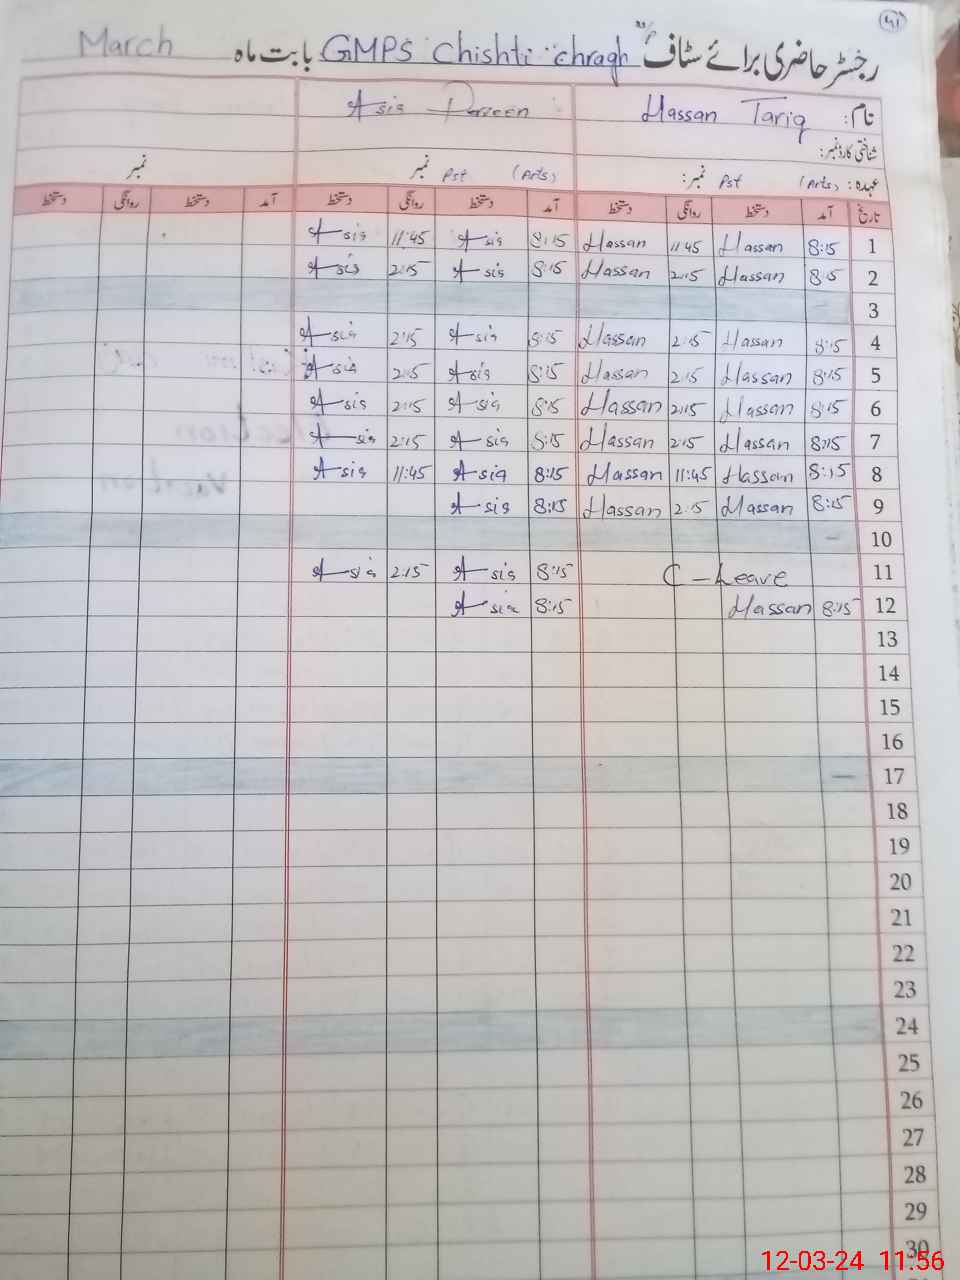 41
رجسٹر حاضری برائے سٹاف GMPS Chishti chragh بابت ماہ March
نام: Hassan Tariq Asia Parveen
شناختی کارڈ نمبر:
عہدہ: Pst (Arts) نمبر: Pst (Arts) نمبر نمبر
تاریخ آمد دستخط روانگی دستخط آمد دستخط روانگی دستخط آمد دستخط روانگی دستخط
1 8:15 Hassan 11:45 Hassan 8:15 Asia 11:45 Asia
2 8:15 Hassan 2:15 Hassan 8:15 Asia 2:15 Asia
3
4 8:15 Hassan 2:15 Hassan 8:15 Asia 2:15 Asia
5 8:15 Hassan 2:15 Hassan 8:15 Asia 2:15 Asia
6 8:15 Hassan 2:15 Hassan 8:15 Asia 2:15 Asia
7 8:15 Hassan 2:15 Hassan 8:15 Asia 2:15 Asia
8 8:15 Hassan 11:45 Hassan 8:15 Asia 11:45 Asia
9 8:15 Hassan 2:15 Hassan 8:15 Asia
10 –
11 C-Leave 8:15 Asia 2:15 Asia
12 8:15 Hassan 8:15 Asia
13
14
15
16
17 —
18
19
20
21
22
23
24
25
26
27
28
29
30
12-03-24 11:56